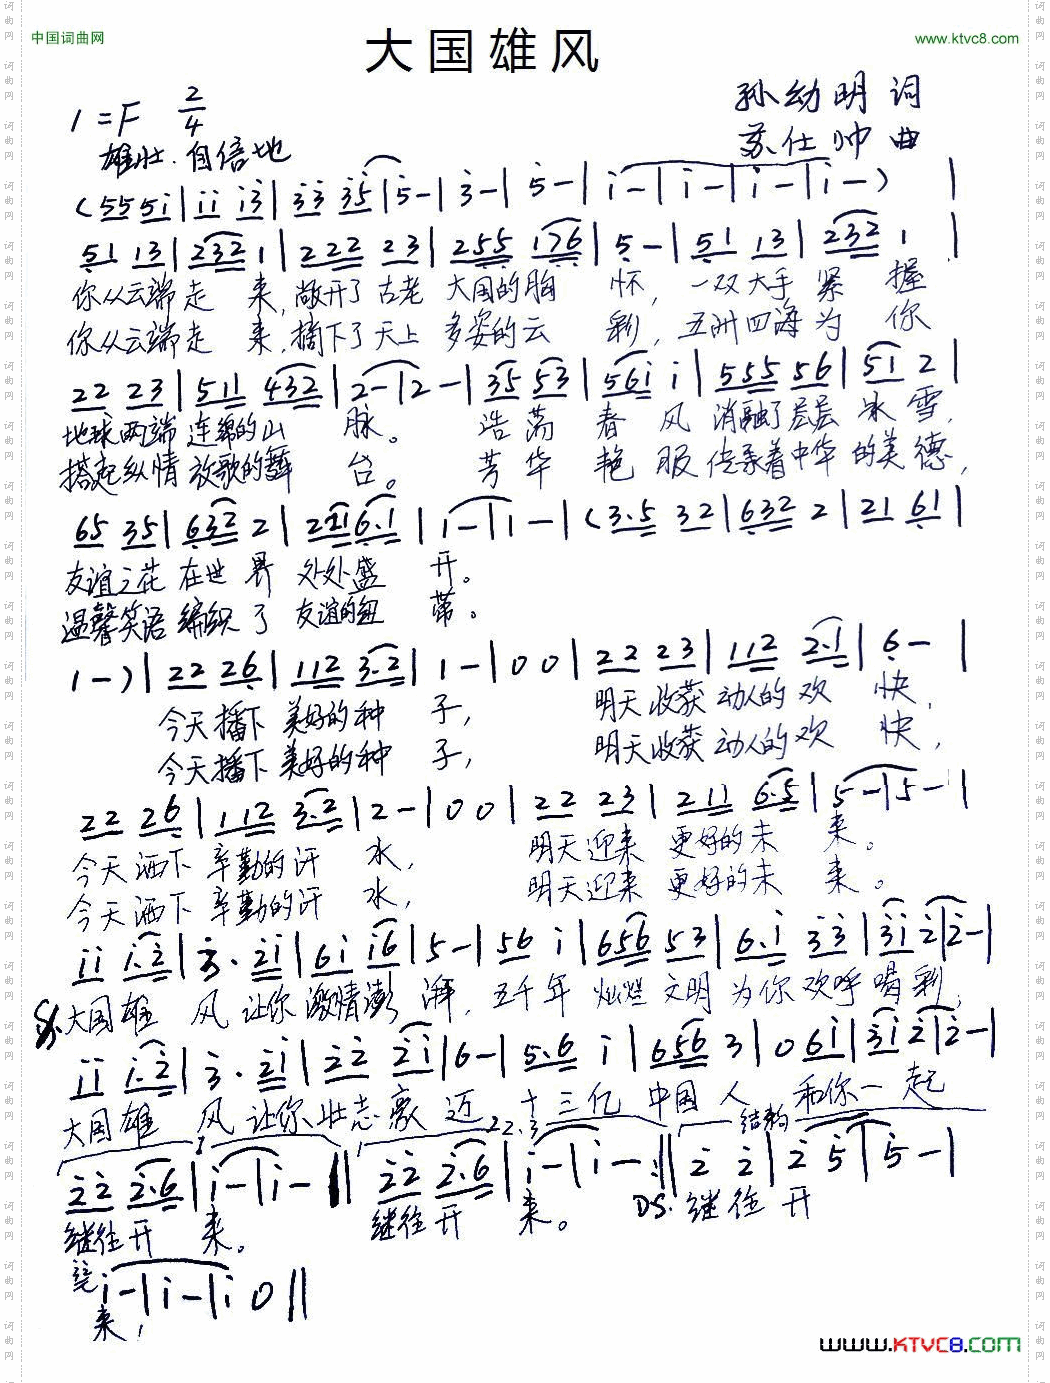 中国词曲网
www.ktvc8.com
大国雄风
1=F 2/4
孙幼明 词
雄壮.自信地
苏仕帅 曲
(55 5i|ii i3|33 35|5-|3-|5-|i-|i-|i-|i-)|
51 13|232 1|222 23|255 176|5-|51 13|232 1|
你从云端走 来,敞开了 古老 大国的胸 怀,一双大手 紧 握
你从云端走 来,摘下了 天上 多姿的云 彩,五洲四海 为 你
22 23|511 432|2-|2-|35 53|56i i|555 56|51 2|
地球两端 连绵的山 脉。 浩荡 春 风 消融了层层 冰 雪,
搭起纵情 放歌的舞 台。 芳华 艳 服 传承着中华 的美 德,
65 35|632 2|221 6.1|1-|1-|(3.5 32|632 2|21 61|
友谊之花 在世 界 处处盛 开。
温馨笑语 编织 了 友谊的纽 带。
1-)|22 26|112 3.2|1-|00|22 23|112 2.1|6-|
今天播下 美好的种 子, 明天收获 动人的欢 快,
今天播下 美好的种 子, 明天收获 动人的欢 快,
22 26|112 3.2|2-|00|22 23|211 6.5|5-|5-|
今天洒下 辛勤的汗 水, 明天迎来 更好的未 来。
今天洒下 辛勤的汗 水, 明天迎来 更好的未 来。
ii i.2|3. 2i|6i i6|5-|56 i|656 53|6.i 33|3i 2|2-|
大国雄 风 让你 激情澎 湃, 五千年 灿烂 文明 为你 欢呼 喝彩,
ii i.2|3. 2i|22 2i|6-|5.6 i|656 3|0 6i|3i 2|2-|
大国雄 风 让你 壮志豪 迈, 十三亿 中国 人 和你一 起
1 2.3 结构
22 2.6|i-|i-||22 2.6|i-|i-:||2 2|2 5|5-|
继往开 来。 继往开 来。 D.S. 继往 开
i-|i-|i 0||
来!
www.KTVC8.com